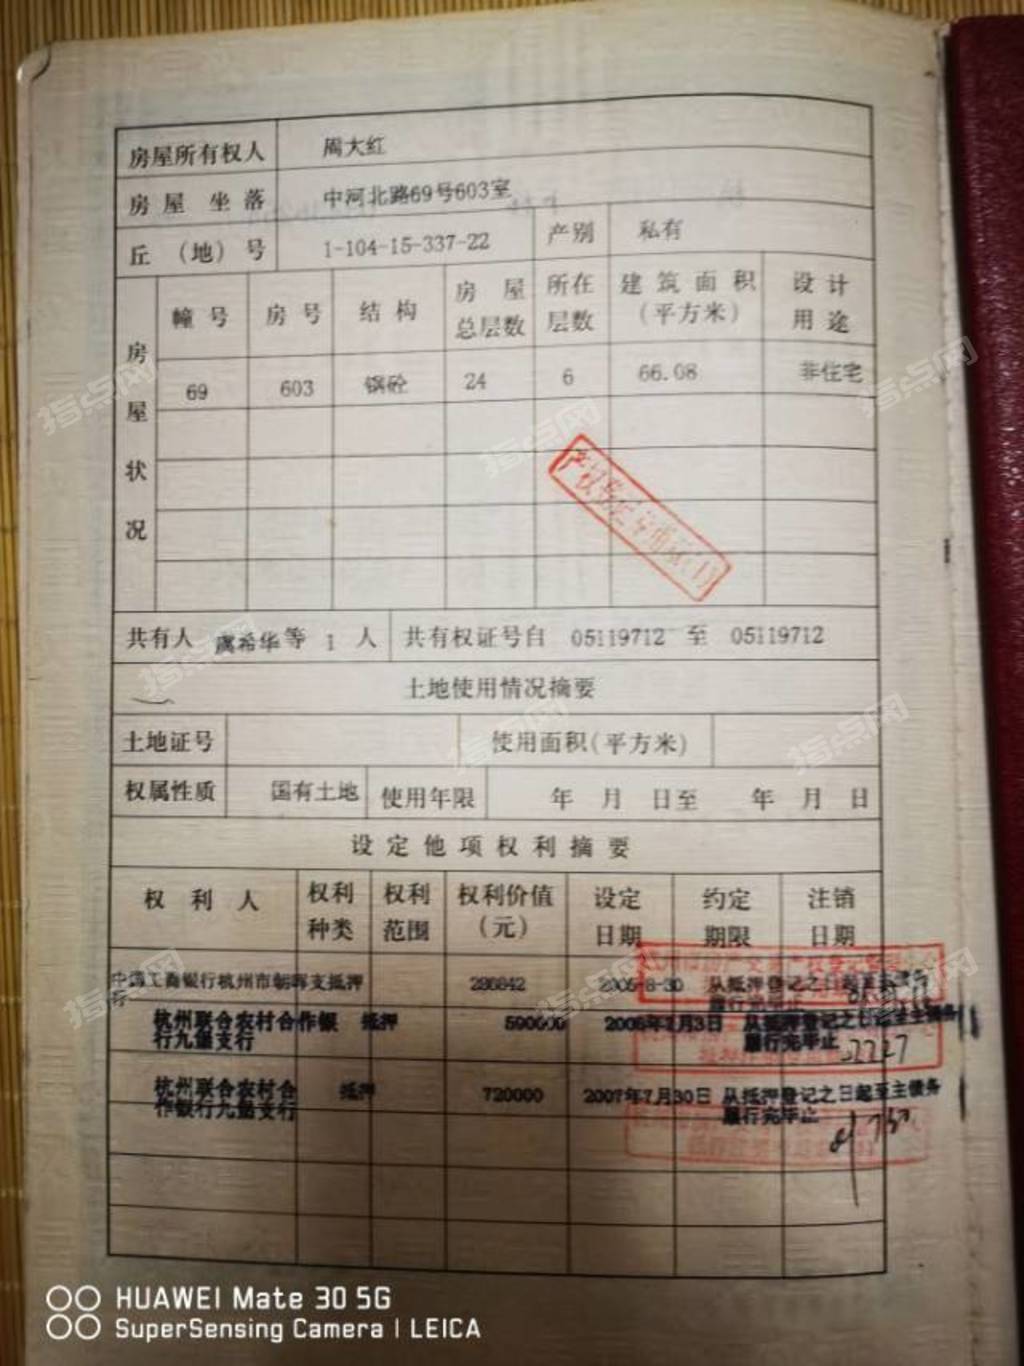 房屋所有权人 周大红
房屋坐落 中河北路69号603室
丘（地）号 1-104-15-337-22 产别 私有
房屋状况
幢号 房号 结构 房屋总层数 所在层数 建筑面积（平方米） 设计用途
69 603 钢砼 24 6 66.08 非住宅
共有人 虞希华等 1 人 共有权证号自 05119712 至 05119712
土地使用情况摘要
土地证号 使用面积(平方米)
权属性质 国有土地 使用年限 年 月 日至 年 月 日
设定他项权利摘要
权利人 权利种类 权利范围 权利价值（元） 设定日期 约定期限 注销日期
中国工商银行杭州市朝晖支 抵押 286842 2005-8-30 从抵押登记之日起至主债务
履行完毕止
杭州联合农村合作银 抵押 590000 2006年2月3日 从抵押登记之日起至主债务
行九堡支行 履行完毕止
杭州联合农村合 抵押 720000 2007年7月30日 从抵押登记之日起至主债务
作银行九堡支行 履行完毕止
指点网
指点网
指点网
指点网
指点网
指点网
HUAWEI Mate 30 5G
SuperSensing Camera | LEICA